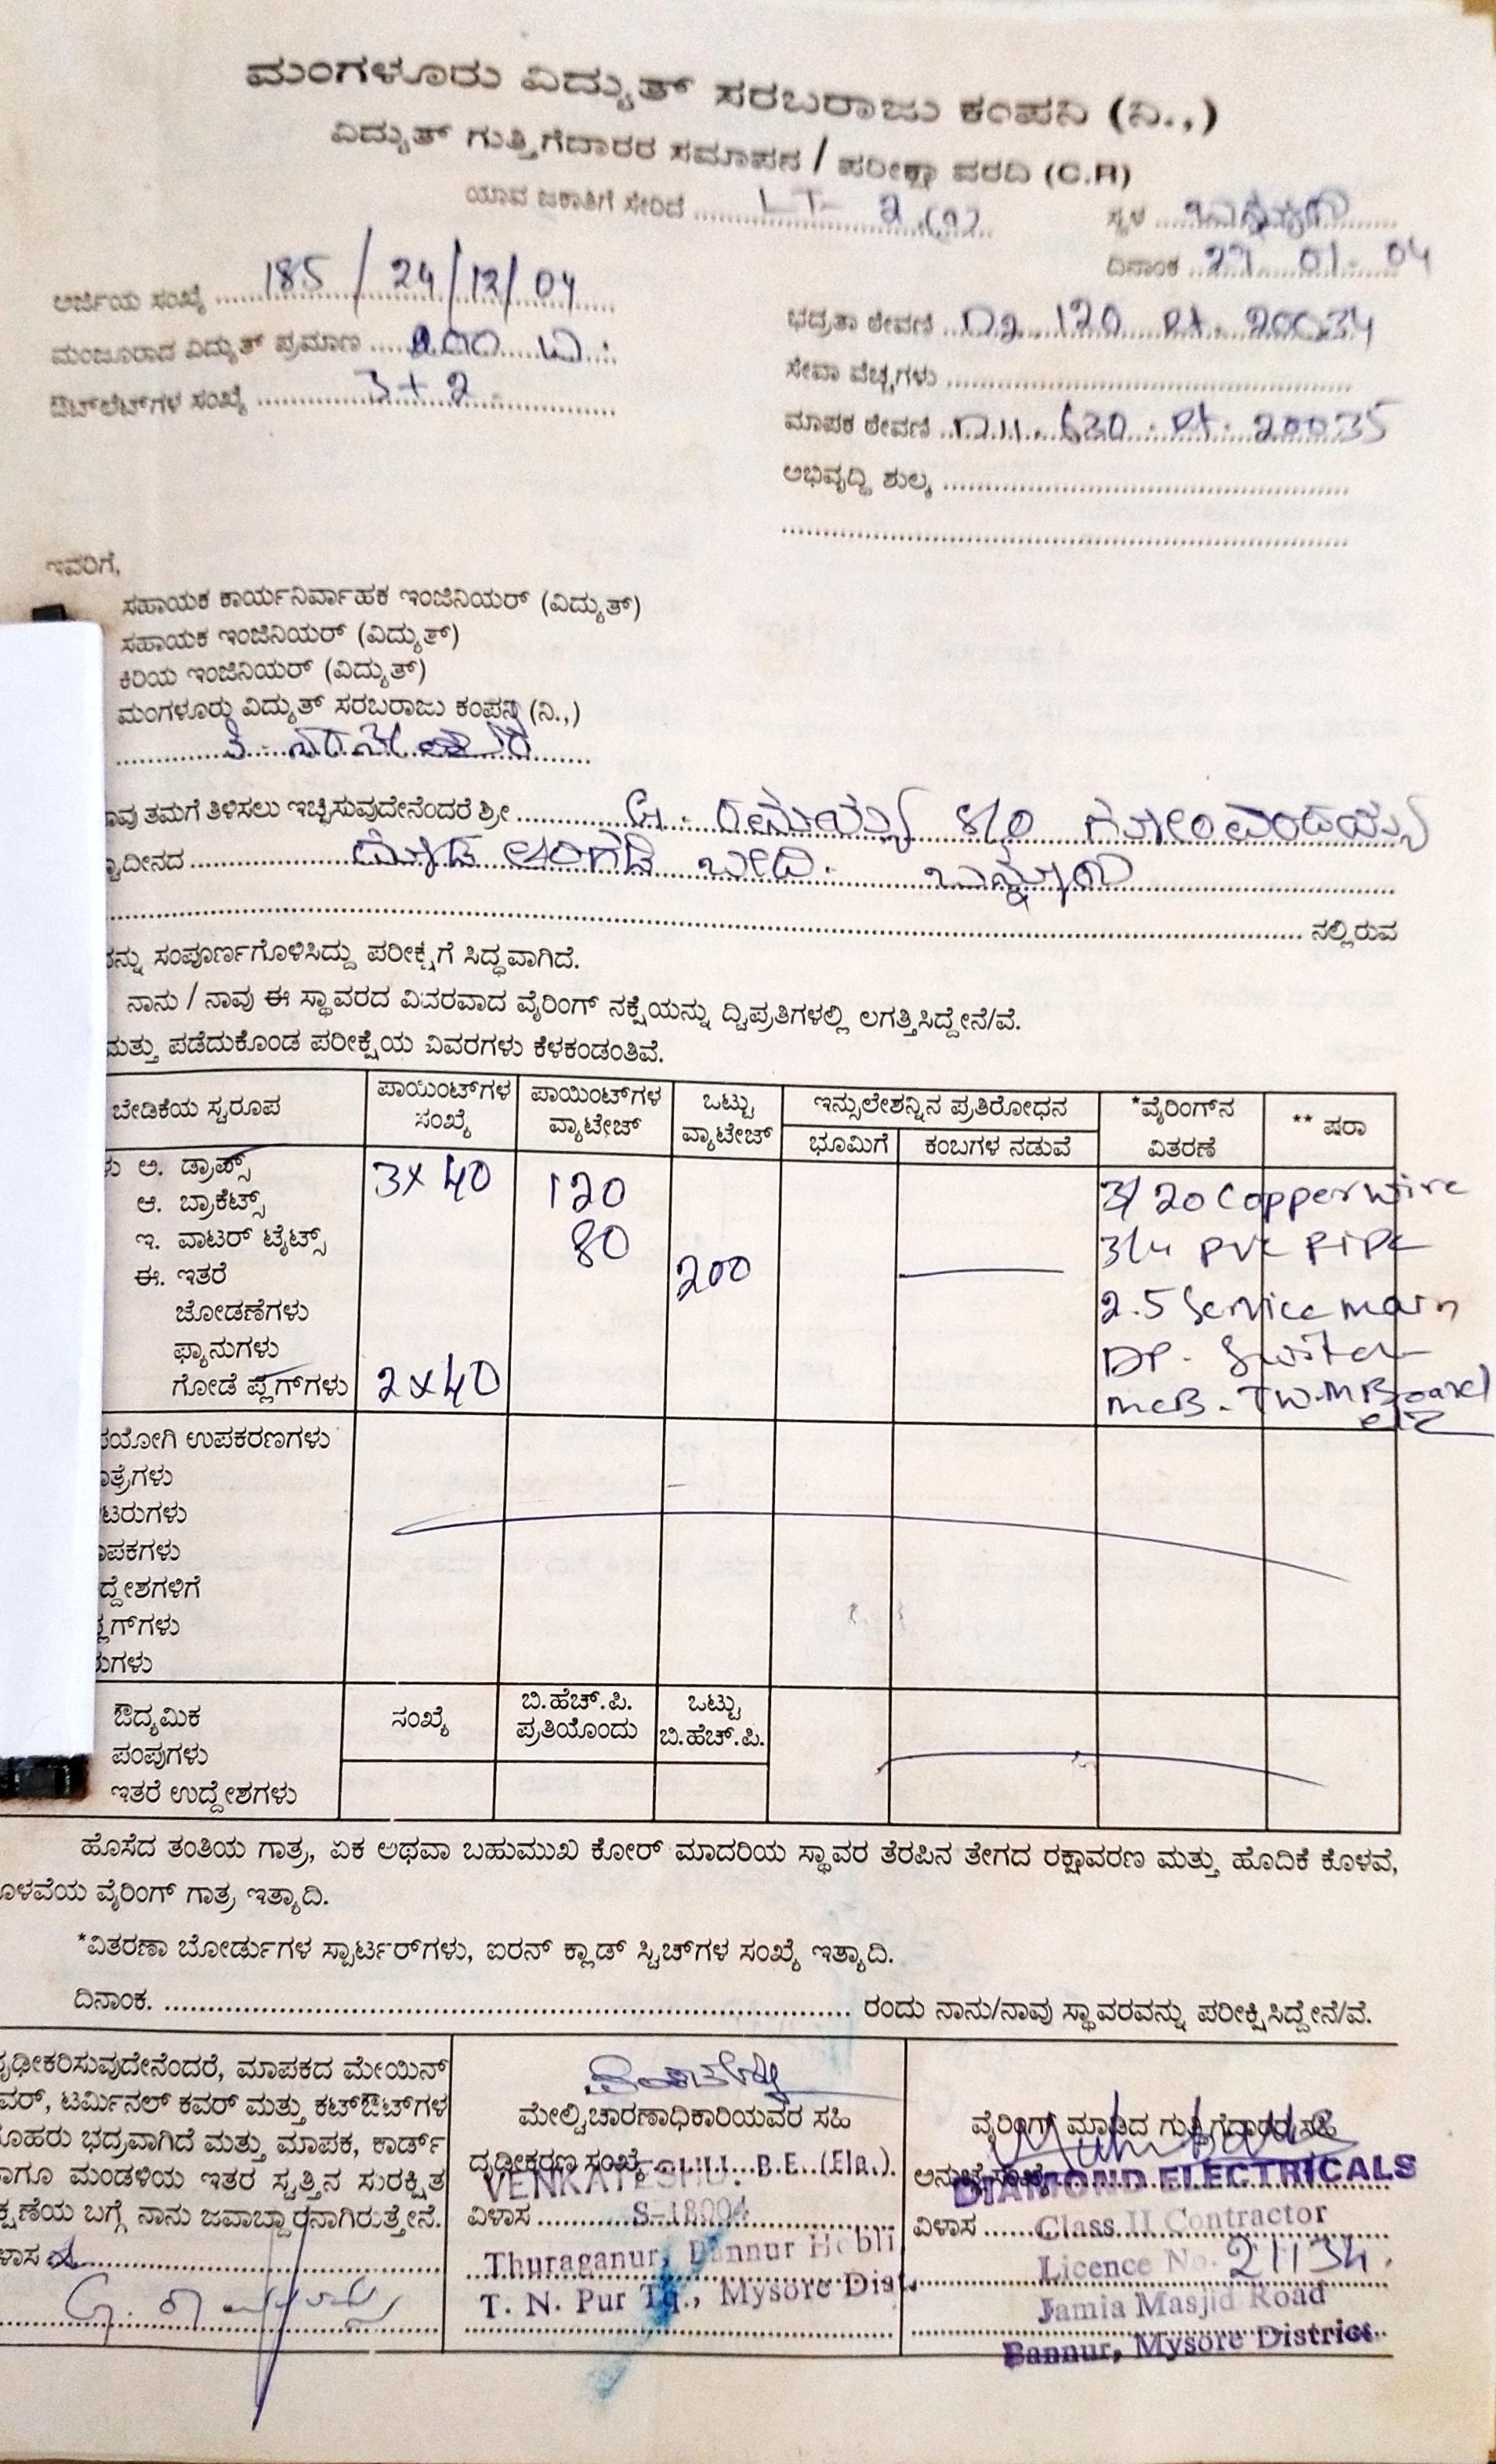 ಮಂಗಳೂರು ವಿದ್ಯುತ್ ಸರಬರಾಜು ಕಂಪನಿ (ನಿ.,)
ವಿದ್ಯುತ್ ಗುತ್ತಿಗೆದಾರರ ಸಮಾಪನ / ಪರೀಕ್ಷಾ ವರದಿ (C.R)
ಯಾವ ಜಕಾತಿಗೆ ಸೇರಿದೆ ........ LT- 2
ಸ್ಥಳ ........ ಬನ್ನೂರು
ದಿನಾಂಕ ..27.. 01- 04
ಅರ್ಜಿಯ ಸಂಖ್ಯೆ ........ 185 / 24/12/04
ಮಂಜೂರಾದ ವಿದ್ಯುತ್ ಪ್ರಮಾಣ ..... 200 ವಿ.
ಔಟ್‌ಲೆಟ್‌ಗಳ ಸಂಖ್ಯೆ ........ 3 + 2
ಭದ್ರತಾ ಠೇವಣಿ ... 120 Rt. 20034
ಸೇವಾ ವೆಚ್ಚಗಳು ........
ಮಾಪಕ ಠೇವಣಿ ... 630 . Rt. 20035
ಅಭಿವೃದ್ಧಿ ಶುಲ್ಕ ........
ಇವರಿಗೆ,
ಸಹಾಯಕ ಕಾರ್ಯನಿರ್ವಾಹಕ ಇಂಜಿನಿಯರ್ (ವಿದ್ಯುತ್)
ಸಹಾಯಕ ಇಂಜಿನಿಯರ್ (ವಿದ್ಯುತ್)
ಕಿರಿಯ ಇಂಜಿನಿಯರ್ (ವಿದ್ಯುತ್)
ಮಂಗಳೂರು ವಿದ್ಯುತ್ ಸರಬರಾಜು ಕಂಪನಿ (ನಿ.,)
ಾವು ತಮಗೆ ತಿಳಿಸಲು ಇಚ್ಛಿಸುವುದೇನೆಂದರೆ ಶ್ರೀ ........ ರಾಮಯ್ಯ S/o ಗೋವಿಂದಯ್ಯ
ದೀನದ ........ ಅಂಗಡಿ ಬೀದಿ. ಬನ್ನೂರು
........ ನಲ್ಲಿರುವ
ರನ್ನು ಸಂಪೂರ್ಣಗೊಳಿಸಿದ್ದು ಪರೀಕ್ಷೆಗೆ ಸಿದ್ಧವಾಗಿದೆ.
ನಾನು / ನಾವು ಈ ಸ್ಥಾವರದ ವಿವರವಾದ ವೈರಿಂಗ್ ನಕ್ಷೆಯನ್ನು ದ್ವಿಪ್ರತಿಗಳಲ್ಲಿ ಲಗತ್ತಿಸಿದ್ದೇನೆ/ವೆ.
ಮತ್ತು ಪಡೆದುಕೊಂಡ ಪರೀಕ್ಷೆಯ ವಿವರಗಳು ಕೆಳಕಂಡಂತಿವೆ.
ಬೇಡಿಕೆಯ ಸ್ವರೂಪ ಪಾಯಿಂಟ್‌ಗಳ ಸಂಖ್ಯೆ ಪಾಯಿಂಟ್‌ಗಳ ವ್ಯಾಟೇಜ್ ಒಟ್ಟು ವ್ಯಾಟೇಜ್ ಇನ್ಸುಲೇಶನ್ನಿನ ಪ್ರತಿರೋಧನ *ವೈರಿಂಗ್‌ನ ವಿತರಣೆ ** ಷರಾ
ಭೂಮಿಗೆ ಕಂಬಗಳ ನಡುವೆ
ು ಅ. ಡ್ರಾಪ್ಸ್ 3x40 120 3/20 Copper wire
ಆ. ಬ್ರಾಕೆಟ್ಸ್
ಇ. ವಾಟರ್ ಟೈಟ್ಸ್ 80 3/4 PVC PIPE
ಈ. ಇತರೆ 200
ಜೋಡಣೆಗಳು 2.5 Service main
ಫ್ಯಾನುಗಳು DP. Switch
ಗೋಡೆ ಪ್ಲಗ್‌ಗಳು 2x40 MCB. TW.M Board etc
ಪಯೋಗಿ ಉಪಕರಣಗಳು
ಾತ್ರೆಗಳು
ಟರುಗಳು
ಾಪಕಗಳು
ದ್ದೇಶಗಳಿಗೆ
್ಲಗ್‌ಗಳು
ುಗಳು
ಔದ್ಯಮಿಕ ಸಂಖ್ಯೆ ಬಿ.ಹೆಚ್.ಪಿ. ಪ್ರತಿಯೊಂದು ಒಟ್ಟು ಬಿ.ಹೆಚ್.ಪಿ.
ಪಂಪುಗಳು
ಇತರೆ ಉದ್ದೇಶಗಳು
ಹೊಸೆದ ತಂತಿಯ ಗಾತ್ರ, ಏಕ ಅಥವಾ ಬಹುಮುಖ ಕೋರ್ ಮಾದರಿಯ ಸ್ಥಾವರ ತೆರಪಿನ ತೇಗದ ರಕ್ಷಾವರಣ ಮತ್ತು ಹೊದಿಕೆ ಕೊಳವೆ,
ೊಳವೆಯ ವೈರಿಂಗ್ ಗಾತ್ರ ಇತ್ಯಾದಿ.
*ವಿತರಣಾ ಬೋರ್ಡುಗಳ ಸ್ಟಾರ್ಟರ್‌ಗಳು, ಐರನ್ ಕ್ಲಾಡ್ ಸ್ವಿಚ್‌ಗಳ ಸಂಖ್ಯೆ ಇತ್ಯಾದಿ.
ದಿನಾಂಕ. ........ ರಂದು ನಾನು/ನಾವು ಸ್ಥಾವರವನ್ನು ಪರೀಕ್ಷಿಸಿದ್ದೇನೆ/ವೆ.
ೃಢೀಕರಿಸುವುದೇನೆಂದರೆ, ಮಾಪಕದ ಮೇಯಿನ್
ವರ್, ಟರ್ಮಿನಲ್ ಕವರ್ ಮತ್ತು ಕಟ್‌ಔಟ್‌ಗಳ
ೊಹರು ಭದ್ರವಾಗಿದೆ ಮತ್ತು ಮಾಪಕ, ಕಾರ್ಡ್
ಾಗೂ ಮಂಡಳಿಯ ಇತರ ಸ್ವತ್ತಿನ ಸುರಕ್ಷಿತ
ಕ್ಷಣೆಯ ಬಗ್ಗೆ ನಾನು ಜವಾಬ್ದಾರನಾಗಿರುತ್ತೇನೆ.
ಳಾಸ ........
ಮೇಲ್ವಿಚಾರಣಾಧಿಕಾರಿಯವರ ಸಹಿ
ದೃಢೀಕರಣ ಸಂಖ್ಯೆ
VENKATESHU. B.E. (Ele.)
ವಿಳಾಸ ........ S-18004
Thuraganur, Bannur Hobli
T. N. Pur Tq., Mysore Dist.
ವೈರಿಂಗ್ ಮಾಡಿದ ಗುತ್ತಿಗೆದಾರರ ಸಹಿ
ಅನುಜ್ಞೆ ಸಂಖ್ಯೆ
DIAMOND ELECTRICALS
ವಿಳಾಸ ...... Class II Contractor
Licence No. 21134
Jamia Masjid Road
Bannur, Mysore District.